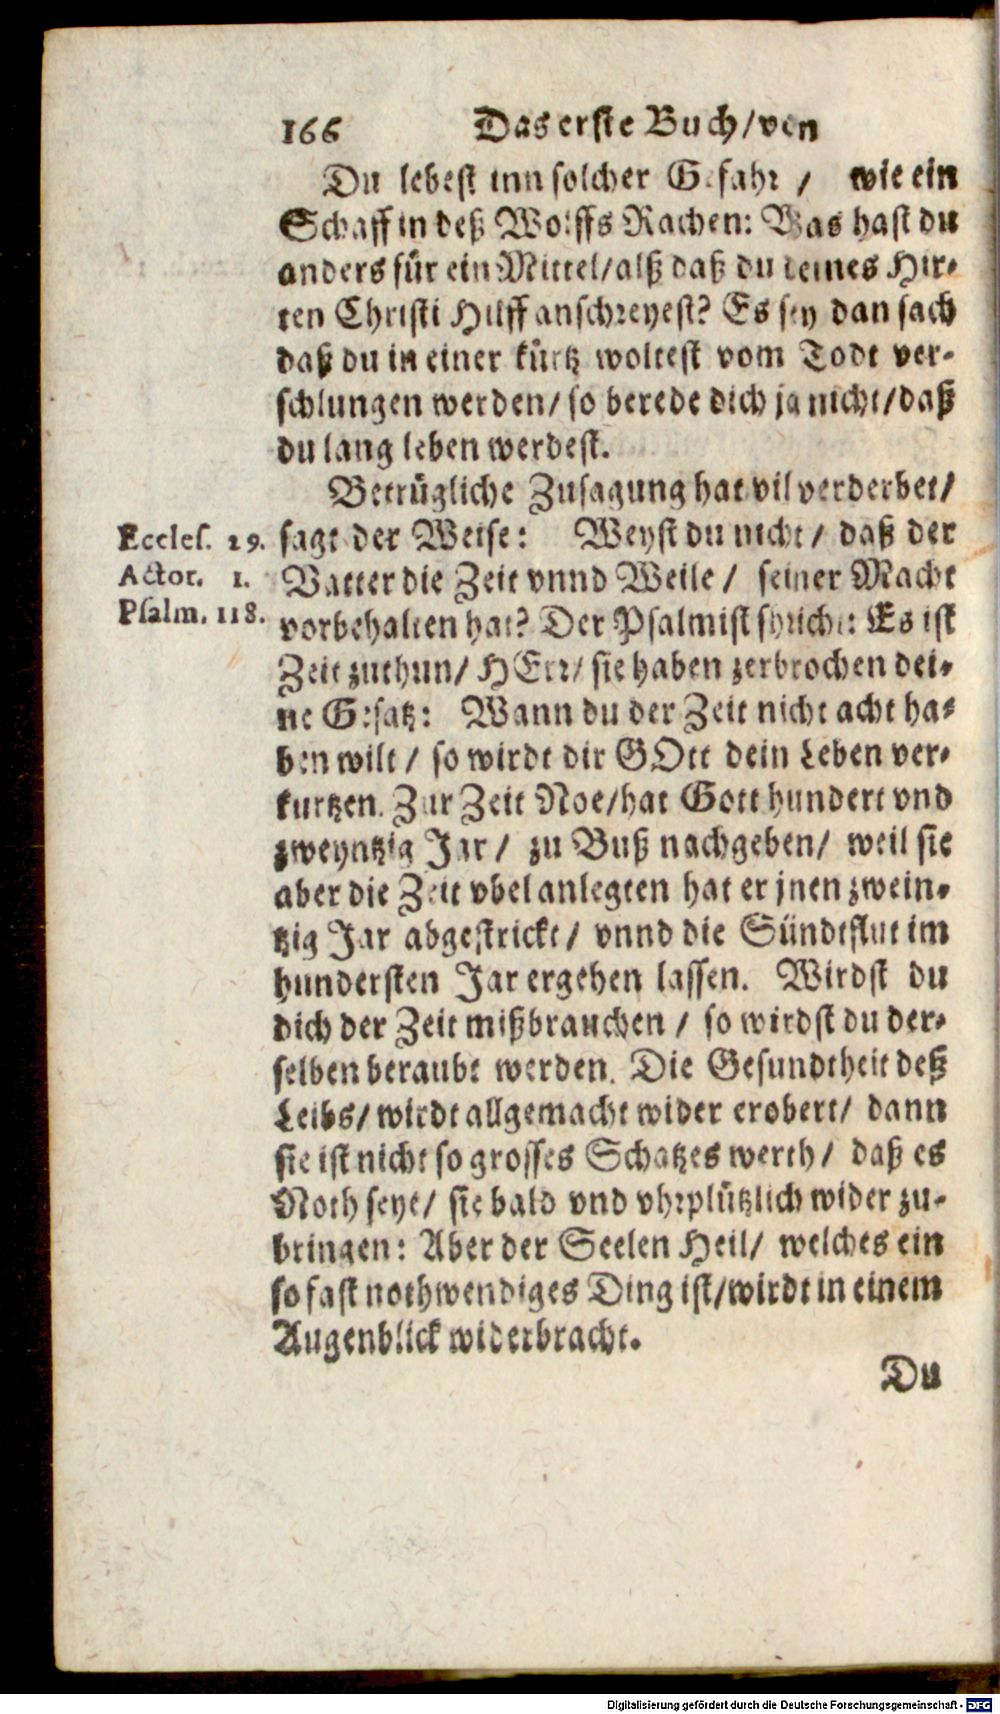 166 Das erste Buch/von
Du lebest inn solcher Gefahr / wie ein
Schaff in deß Wolffs Rachen: Was hast du
anders für ein Mittel/alß daß du deines Hir-
ten Christi Hilff anschreyest? Es sey dan sach
daß du in einer kürtz woltest vom Todt ver-
schlungen werden/ so berede dich ja nicht/daß
du lang leben werdest.
Betrügliche Zusagung hat vil verderbet/
Eccles. 29. sagt der Weise: Weyst du nicht / daß der
Actor. 1. Vatter die Zeit vnnd Weile / seiner Macht
Psalm. 118. vorbehalten hat? Der Psalmist spricht: Es ist
Zeit zuthun/ HErr/ sie haben zerbrochen dei-
ne Gesatz: Wann du der Zeit nicht acht ha-
ben wilt / so wirdt dir GOtt dein Leben ver-
kurtzen. Zur Zeit Noe/hat Gott hundert vnd
zweyntzig Jar / zu Buß nachgeben/ weil sie
aber die Zeit vbel anlegten hat er jnen zwein-
tzig Jar abgestrickt / vnnd die Sündtflut im
hundersten Jar ergehen lassen. Wirdst du
dich der Zeit mißbrauchen / so wirdst du der-
selben beraubt werden. Die Gesundtheit deß
Leibs/ wirdt allgemacht wider erobert/ dann
sie ist nicht so grosses Schatzes werth/ daß es
Noth seye/ sie bald vnd vhrplützlich wider zu-
bringen: Aber der Seelen Heil/ welches ein
so fast nothwendiges Ding ist/wirdt in einem
Augenblick widerbracht.
Du
Digitalisierung gefördert durch die Deutsche Forschungsgemeinschaft - DFG